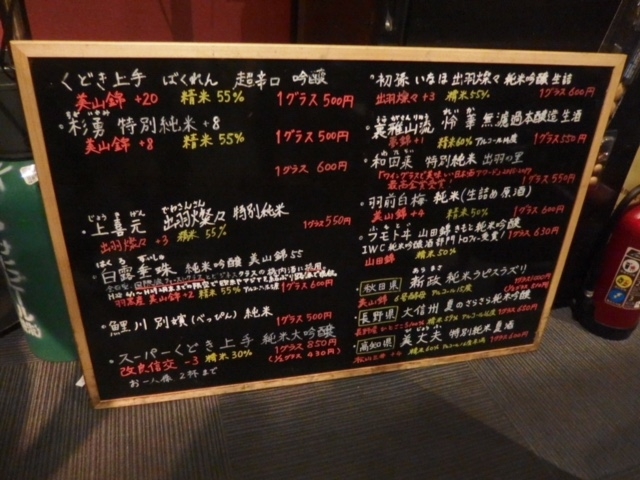 くどき上手 ばくれん 超辛口 吟醸
美山錦 +20 精米 55% 1グラス 500円
杉勇 特別純米 +8
美山錦 +8 精米 55% 1グラス 500円
1グラス 600円
上喜元 出羽燦々 特別純米
出羽燦々 +3 精米 55% 1グラス 550円
白露垂珠 純米吟醸 美山錦 55
羽黒産 美山錦 +2 精米 55% 1グラス 600円
鯉川 別嬪(べっぴん) 純米 1グラス 500円
スーパーくどき上手 純米大吟醸
改良信交 -3 精米 30% 1グラス 850円
お一人様 2杯まで (1/2グラス 430円)
初孫 いなほ 出羽燦々 純米吟醸 生詰
出羽燦々 +3 精米 55% 1グラス 600円
裏雅山流 怜華 無濾過本醸造 生酒
+1 精米 60% 1グラス 550円
和田来 特別純米 出羽の里
「ワイングラスで美味しい日本酒アワード
最高金賞受賞! 1グラス 550円
羽前白梅 純米(生詰め原酒)
美山錦 +4 精米 50% 1グラス 600円
フモトヰ 山田錦 きもと純米吟醸
IWC 純米吟醸酒部門 トロフィー受賞! 1グラス 630円
山田錦 精米 50%
秋田県 新政 純米 ラピスラズリ
美山錦 6号酵母
長野県 大信州 夏のさらさら純米吟醸
1グラス 650円
高知県 美丈夫 特別純米 夏酒
松山三井 +4 精米 60% 1グラス 600円